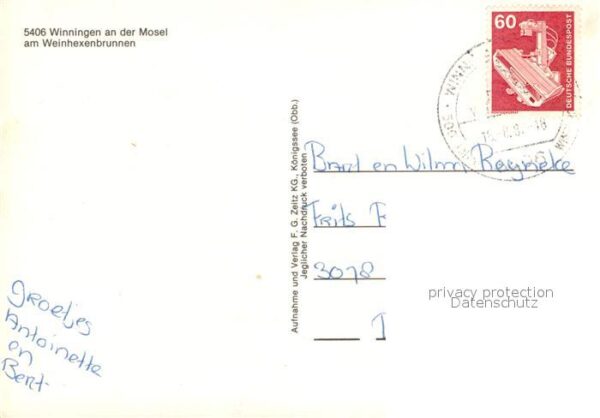 5406 Winningen an der Mosel
am Weinhexenbrunnen
60
DEUTSCHE BUNDESPOST
WINN
Aufnahme und Verlag F. G. Zeitz KG., Königssee (Obb.)
Jeglicher Nachdruck verboten
Bart en Wilma Reyneke
Frits F
3078
privacy protection
Datenschutz
groetjes
Antoinette
en
Bert